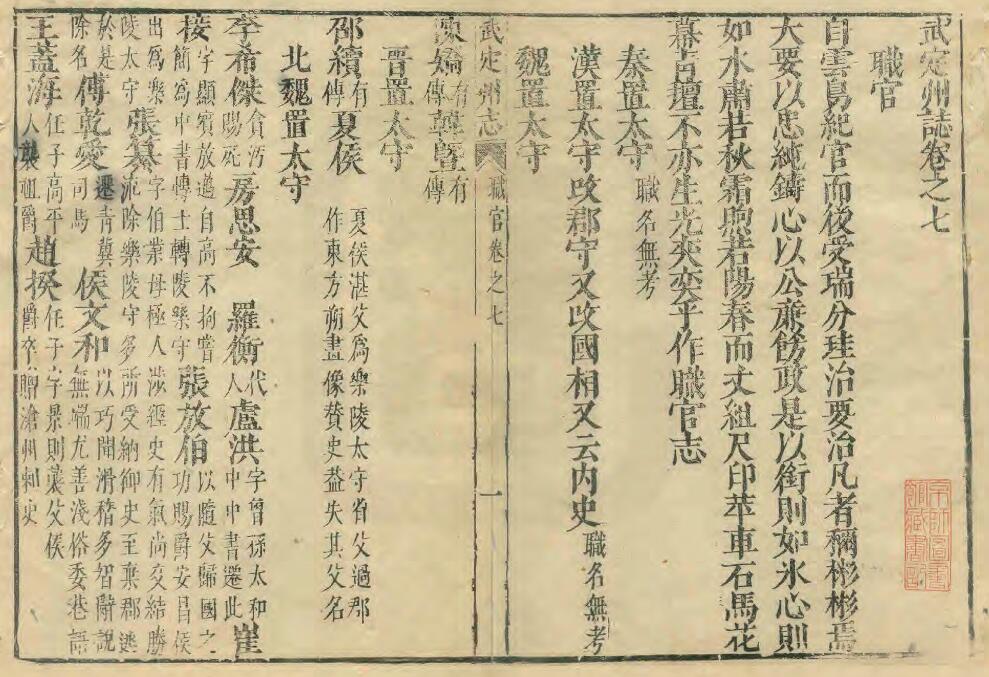 武定州誌卷之七
職官
自雲鳥紀官而後受瑞分珪治要治凡者稱彬彬焉
大要以忠純鑄心以公廉飭政是以銜則如氷心則
如水肅若秋霜煦若陽春而丈組尺印苹車石馬花
幕言壇不亦生光奕奕乎作職官志
秦置太守職名無考
漢置太守攺郡守又攺國相又云内史職名無考
魏置太守
武定州志 職官卷之七 一
陳矯有傳韓曁有傳
晉置太守
邵續有傳夏侯夏侯湛父爲樂陵太守省父過郡作東方朔畫像贊史葢失其父名
北魏置太守
李希傑貪汚賜死房思安 羅衡代人盧洪字曾孫太和中中書遷此崔
接字顯賓放邁自高不拘嘗簡爲中書博士轉陵樂守張放伯以隨父歸國之功賜爵安昌侯
出爲樂陵太守張纂字伯業母極人涉經史有氣尚交結勝流除樂陵守多所受納御史至棄郡逃
於是除名傅乾愛遷青冀司馬侯文和以巧聞滑稽多智辭說無端尤善淺俗委巷語
王葢海任子高平人襲祖爵趙揆任子字景則襲父侯爵卒贈滄州刺史